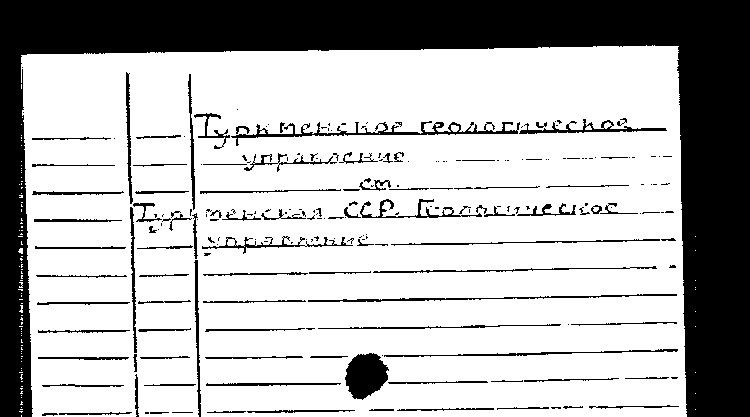 Туркменское геологическое
управление
см.
Туркменская ССР. Геологическое
управление